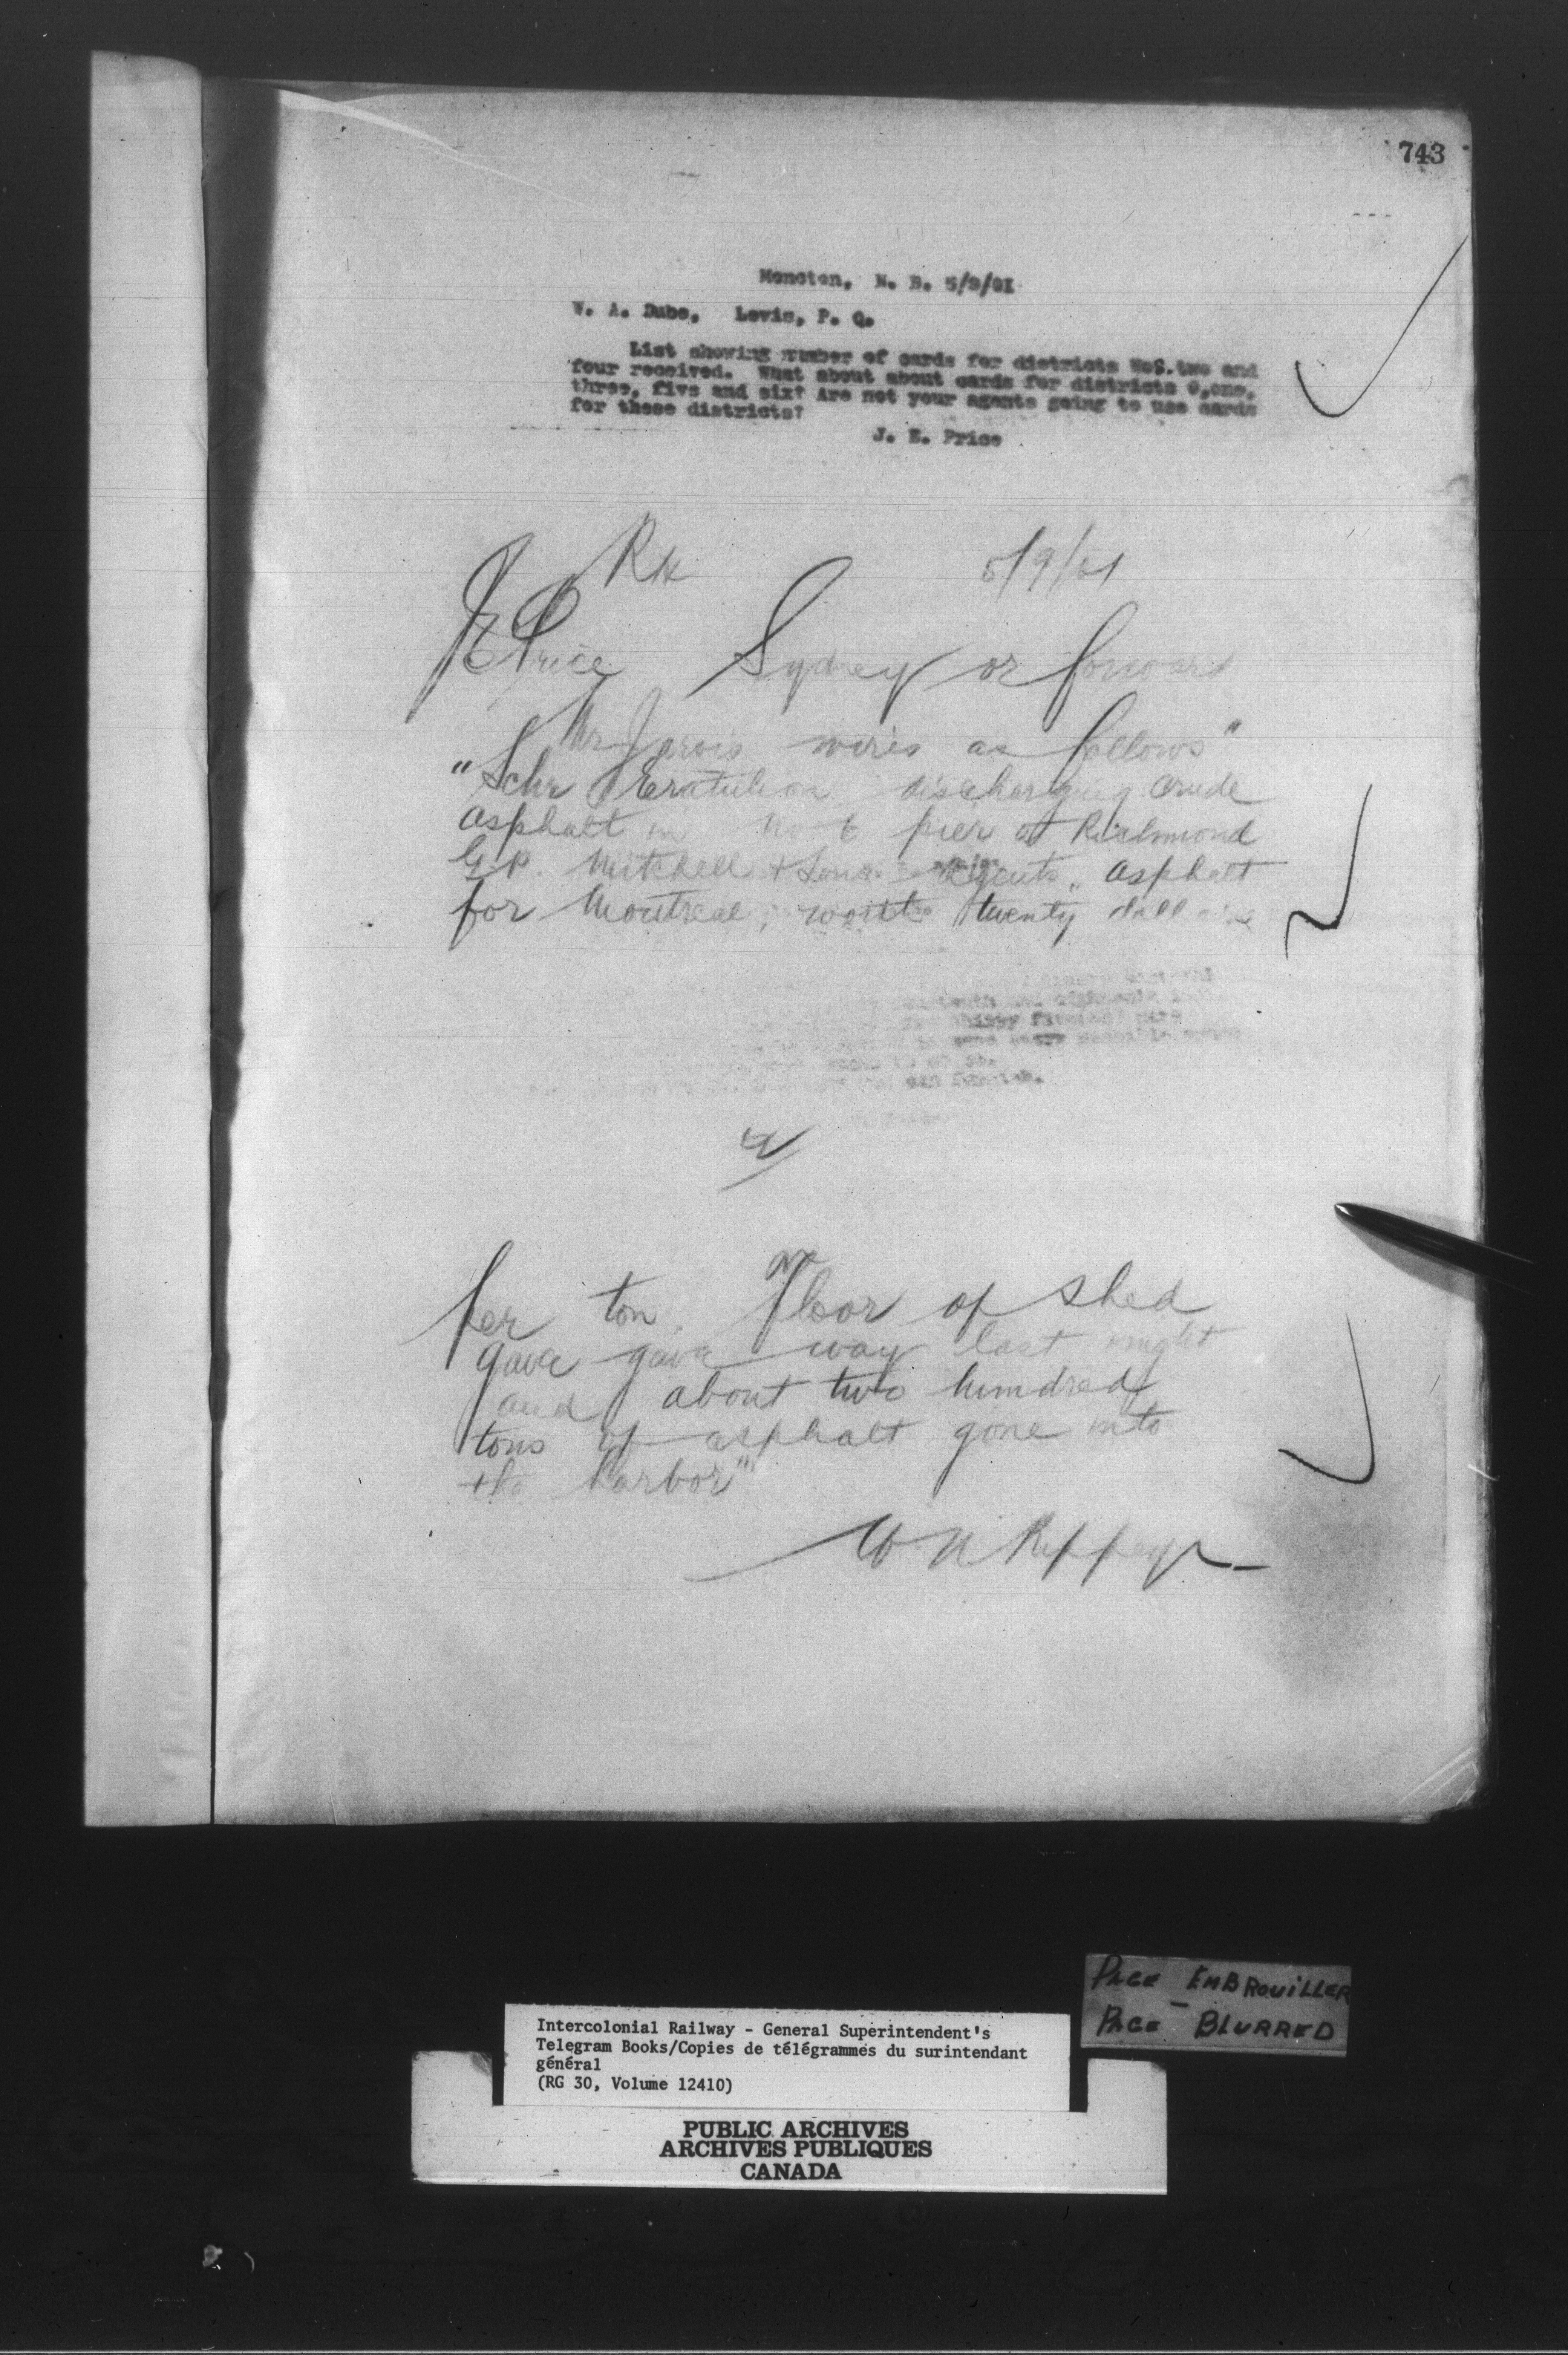 743
Moncton, N. B. 5/9/01
W. A. Dube, Levis, P. Q.
List showing number of cards for districts NoS. two and
four received. What about about cards for districts 0,one,
three, five and six? Are not your agents going to use cards
for these districts?
J. E. Price
5/9/01
JE Price Sydney or forward
Mr Jarvis wires as follows"
"Schr discharging crude
asphalt in No 6 pier at Richmond
G.P. Mitchell & Sons agents asphalt
for Montreal, worth twenty dollars
per ton. Floor of shed
gave gave way last night
and about two hundred
tons of asphalt gone into
the harbor"
PAGE EMBROUILLER
PAGE BLURRED
Intercolonial Railway - General Superintendent's
Telegram Books/Copies de télégrammes du surintendant
général
(RG 30, Volume 12410)
PUBLIC ARCHIVES
ARCHIVES PUBLIQUES
CANADA